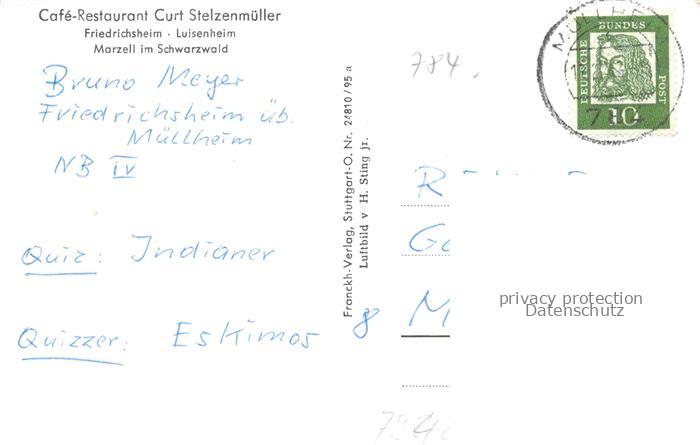 Café-Restaurant Curt Stelzenmüller
Friedrichsheim · Luisenheim
Marzell im Schwarzwald
Bruno Meyer
Friedrichsheim üb.
Müllheim
NB IV
Quiz: Indianer
Quizzer: Eskimos
Franckh-Verlag, Stuttgart-O. Nr. 24810/95 a
Luftbild v H. Sting jr.
784.
MÜLLHEIM
DEUTSCHE BUNDES POST
10
8 M
privacy protection
Datenschutz